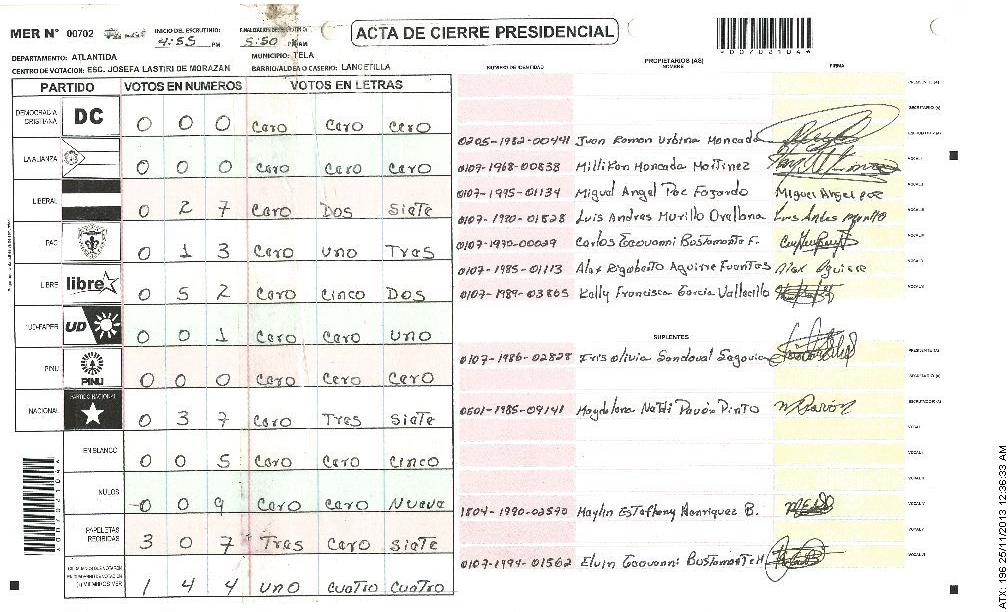 MER N° 00702
INICIO DEL ESCRUTINIO: 4:55 PM
5:50 PM/AM
ACTA DE CIERRE PRESIDENCIAL
DEPARTAMENTO: ATLANTIDA
MUNICIPIO: TELA
CENTRO DE VOTACION: ESC. JOSEFA LASTIRI DE MORAZAN
BARRIO/ALDEA O CASERIO: LANCETILLA
PARTIDO VOTOS EN NUMEROS VOTOS EN LETRAS
DEMOCRACIA CRISTIANA DC 0 0 0 Cero Cero Cero
LA ALIANZA 0 0 0 Cero Cero Cero
LIBERAL 0 2 7 Cero Dos Siete
PAC 0 1 3 Cero Uno Tres
LIBRE libre 0 5 2 Cero Cinco Dos
UD-FAPER UD 0 0 1 Cero Cero Uno
PINU PINU 0 0 0 Cero Cero Cero
NACIONAL PARTIDO NACIONAL 0 3 7 Cero Tres Siete
EN BLANCO 0 0 5 Cero Cero Cinco
NULOS 0 0 9 Cero Cero Nueve
PAPELETAS RECIBIDAS 3 0 7 Tres Cero Siete
1 4 4 Uno Cuatro Cuatro
NUMERO DE IDENTIDAD
PROPIETARIOS (AS)
NOMBRE
FIRMA
PRESIDENTE (A)
SECRETARIO (A)
0205-1982-00441 Juan Ramon Urbina Moncada ESCRUTADOR (A)
0107-1968-00838 Millifon Moncada Martinez VOCAL I
0107-1995-01134 Miguel Angel Paz Fajardo Miguel Angel paz
0107-1990-01828 Luis Andres Murillo Orellana
0107-1970-00029 Carlos Geovanni Bustamante F.
0107-1985-01113 Alex Rigoberto Aguirre Fuentes Alex Aguirre
0107-1989-03805 Kelly Francisca Garcia Vallecillo
SUPLENTES
0107-1986-02828 Iris Olivia Sandoval Segovia PRESIDENTE (A)
SECRETARIO (A)
0501-1985-09141 Magdalena Natali Pavon Pinto ESCRUTADOR (A)
VOCAL I
1804-1990-02590 Haylin Estefhany Henriquez B.
0107-1994-01562 Elvin Geovanni Bustamante H
ATX: 196 25/11/2013 12:36:33 AM